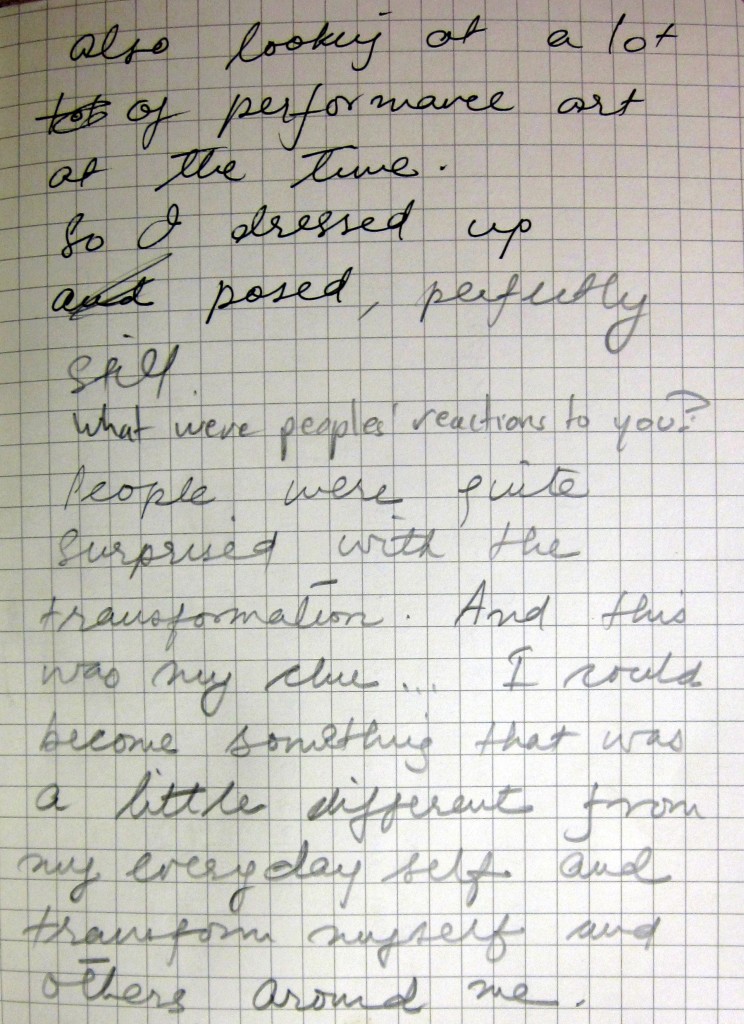 also looking at a lot
of performance art
at the time.
So I dressed up
and posed, perfectly
still
What were peoples' reactions to you?
People were quite
surprised with the
transformation. And this
was my clue... I could
become something that was
a little different from
my everyday self and
transform myself and
others around me.